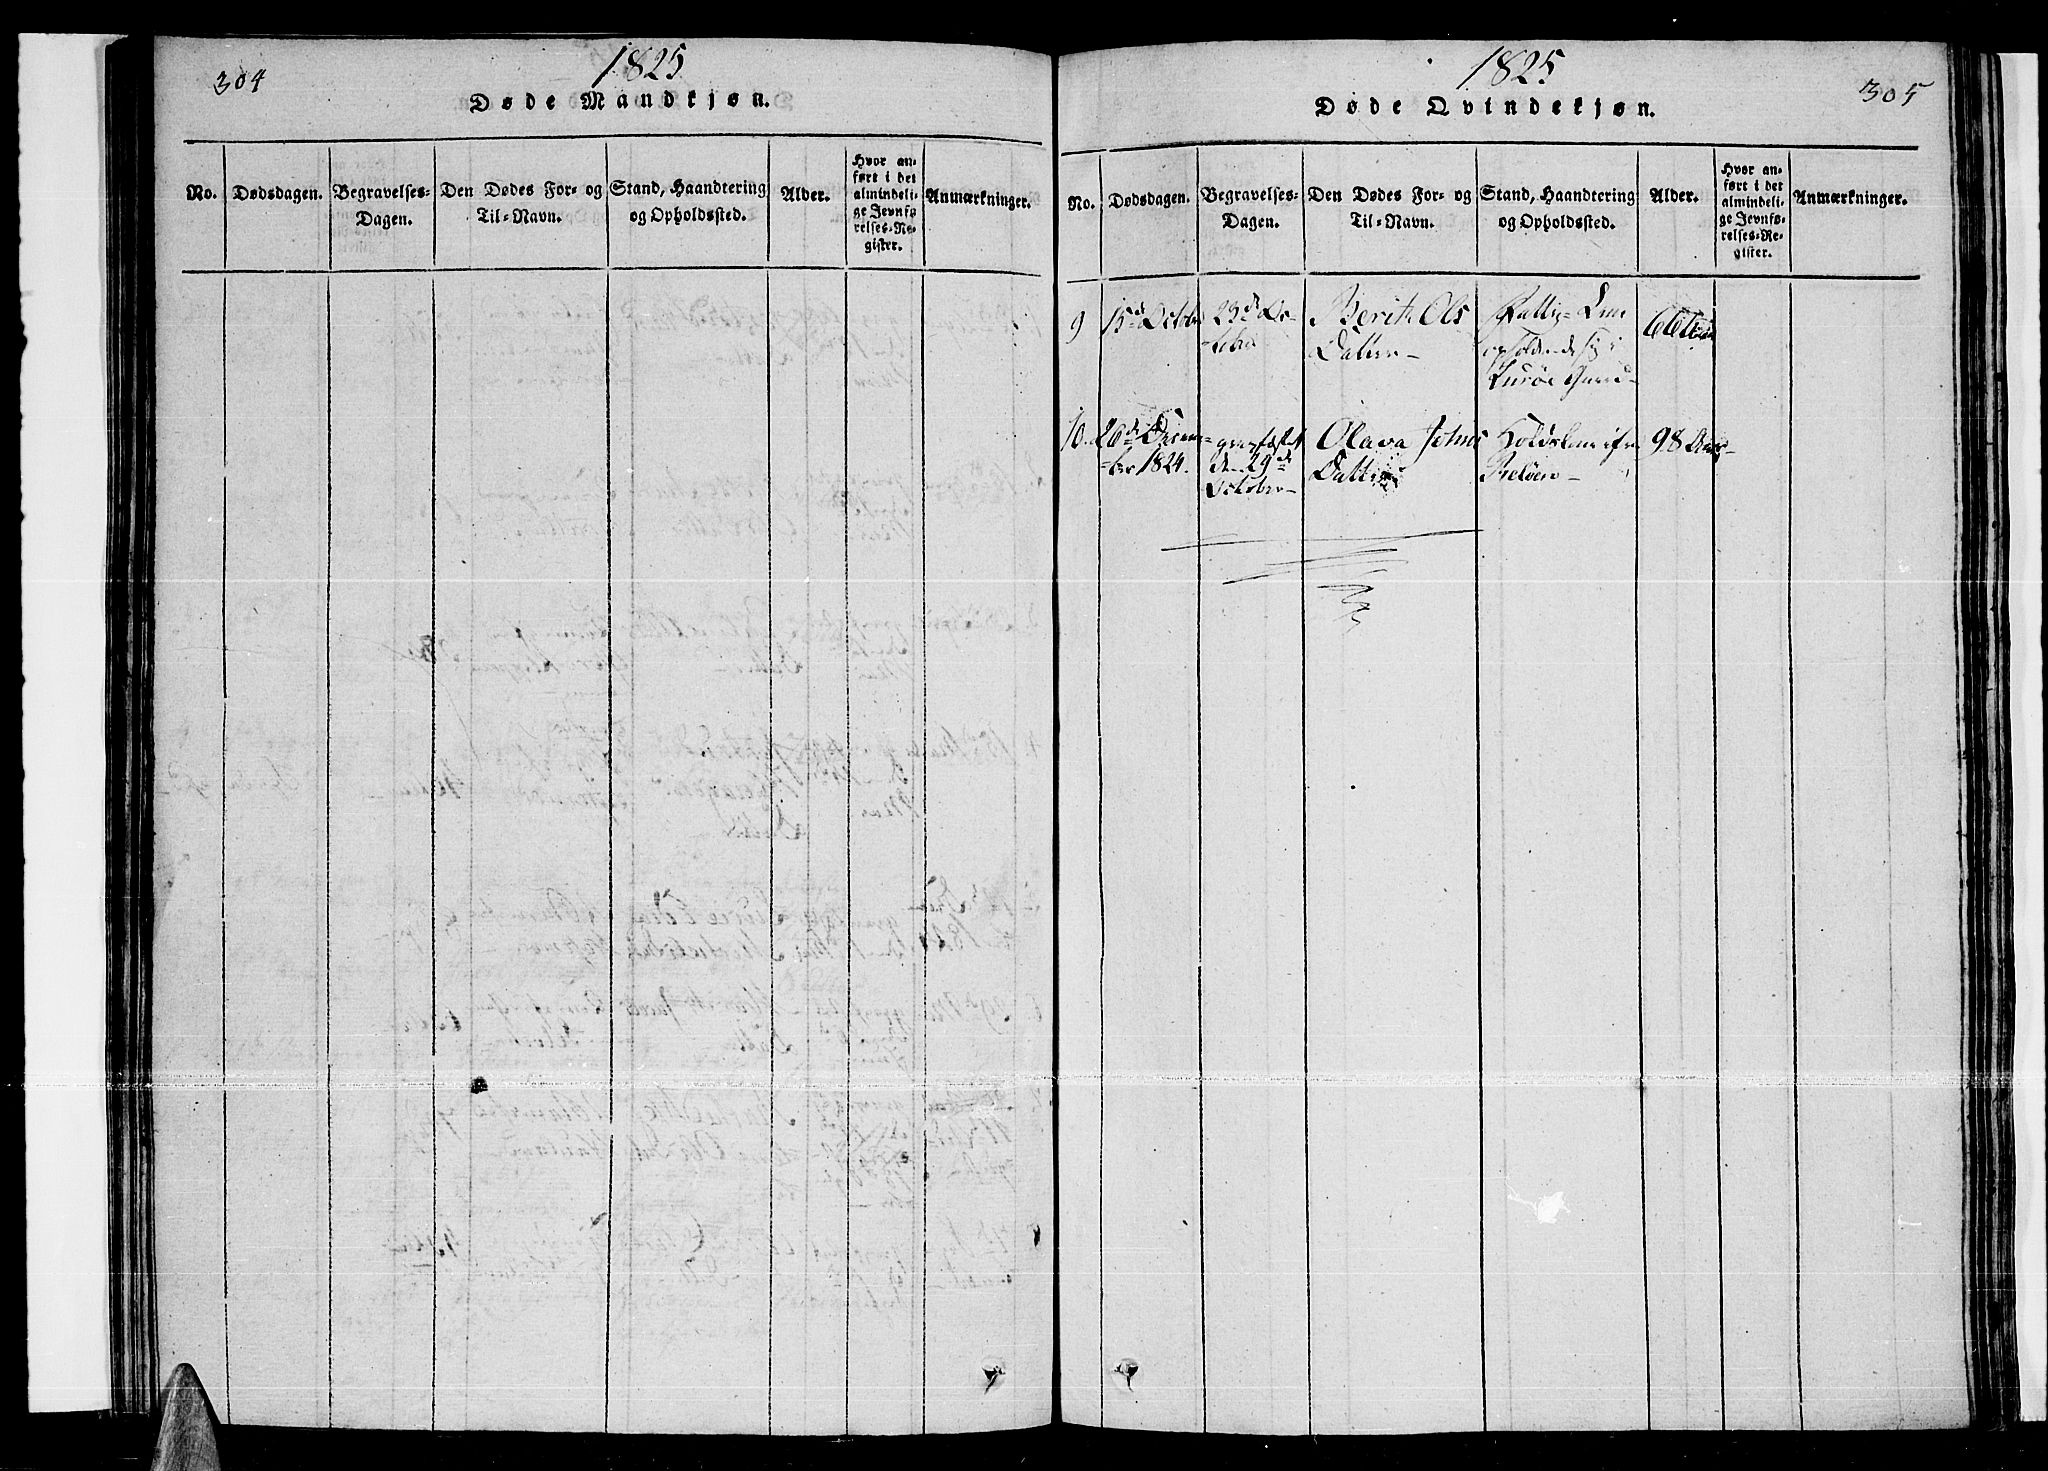 304
1825
Døde Mandkjøn.
No.
Dødsdagen.
Begravelses-
Dagen.
Den Dødes For- og
Til-Navn.
Stand, Haandtering
og Opholdssted.
Alder.
Hvor an-
ført i det
almindeli-
ge Jevnfø-
relses-Re-
gister.
Anmærkninger.
1825
305
Døde Qvindekjøn.
No.
Dødsdagen.
Begravelses-
Dagen.
Den Dødes For- og
Til-Navn.
Stand, Haandtering
og Opholdssted.
Alder.
Hvor an-
ført i det
almindeli-
ge Jevnfø-
relses-Re-
gister.
Anmærkninger.
9
15de Octobr
23de Oc-
-tobr
Berit Ols
Datter-
Fattig-Lem
opholdende sig i
Lurøe
66
10.
26de Decem-
-ber 1824.
gravfæstet
den 29de
October-
Olava Johns
Datter
98 Aar